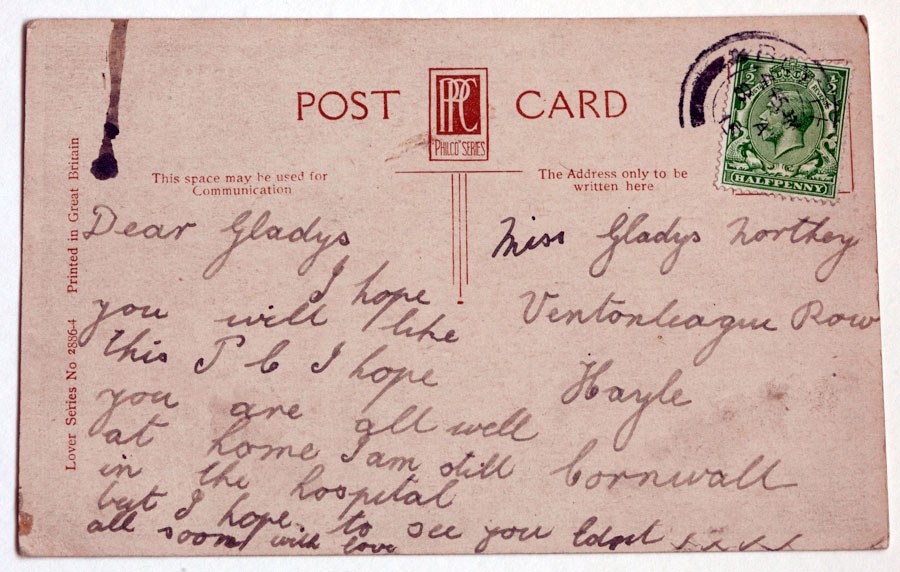 POST CARD
PPC
"PHILCO" SERIES
½ ½
HALFPENNY
This space may be used for
Communication
The Address only to be
written here
Lover Series No 2886-4 Printed in Great Britain
Dear Gladys
I hope
you will like
this P C I hope
you are all well
at home I am still
in the hospital
but I hope to see you
all soon with love
x x x x
Miss Gladys Northey
Ventonleague Row
Hayle
Cornwall